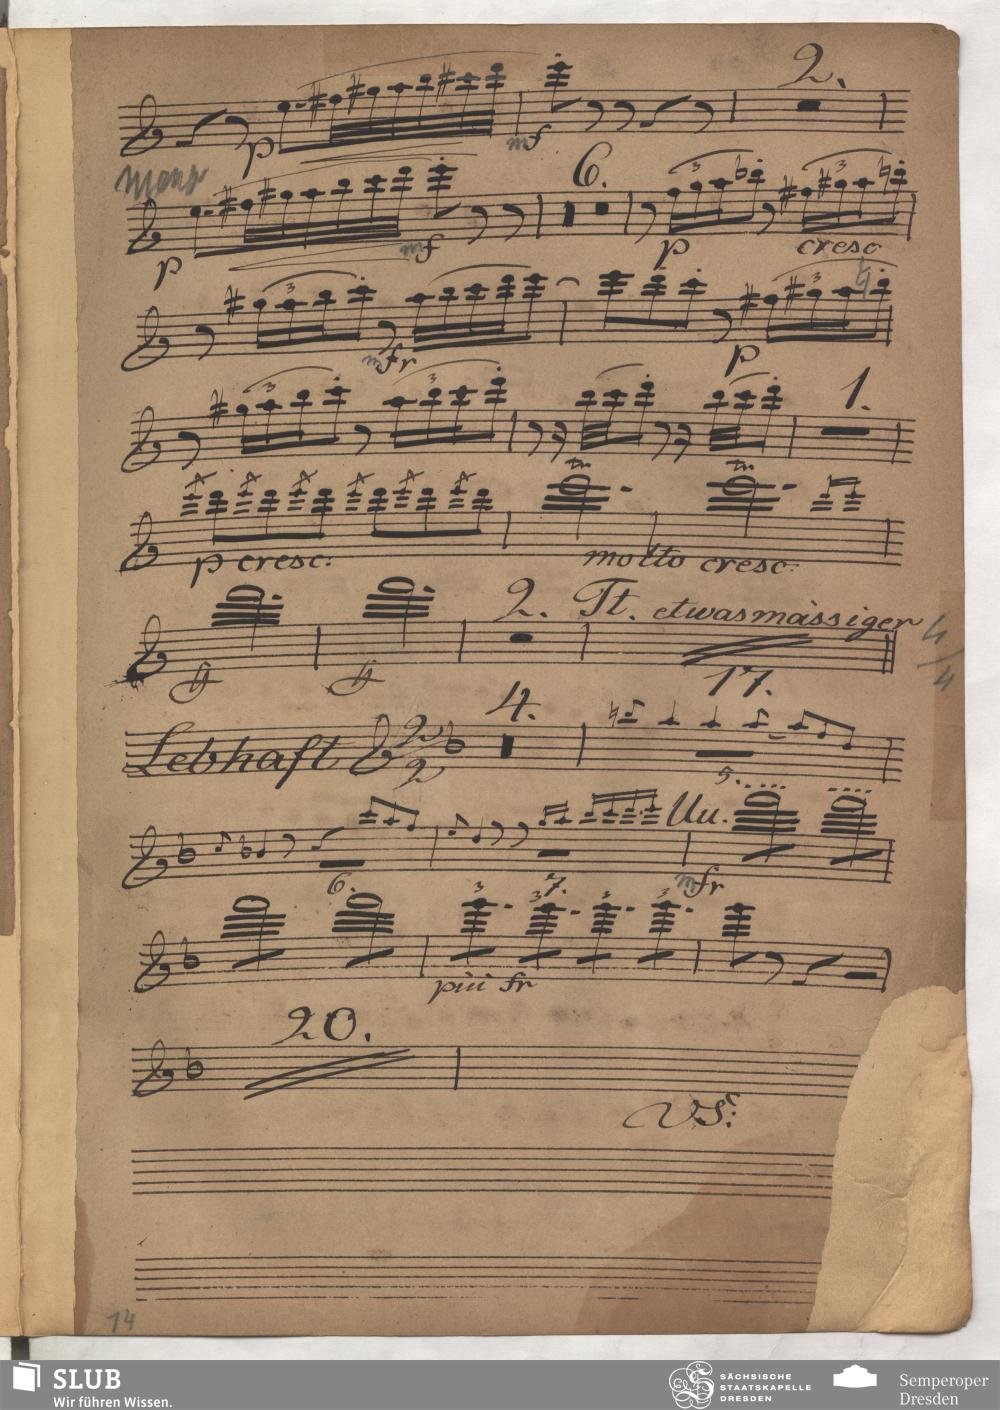 2.
p mf
6.
p mf p cresc
3 3
3 mfr p 3
3 3 3 1.
tr tr
p cresc: molto cresc:
2. Tt. etwas mässiger
ff ff 17.
4/4
Lebhaft 2/2 4.
5.
Uu.
6. 7. mfr
3 3 3 3
più fr
20.
VS:
14
SLUB
Wir führen Wissen.
SÄCHSISCHE
STAATSKAPELLE
DRESDEN
Semperoper
Dresden